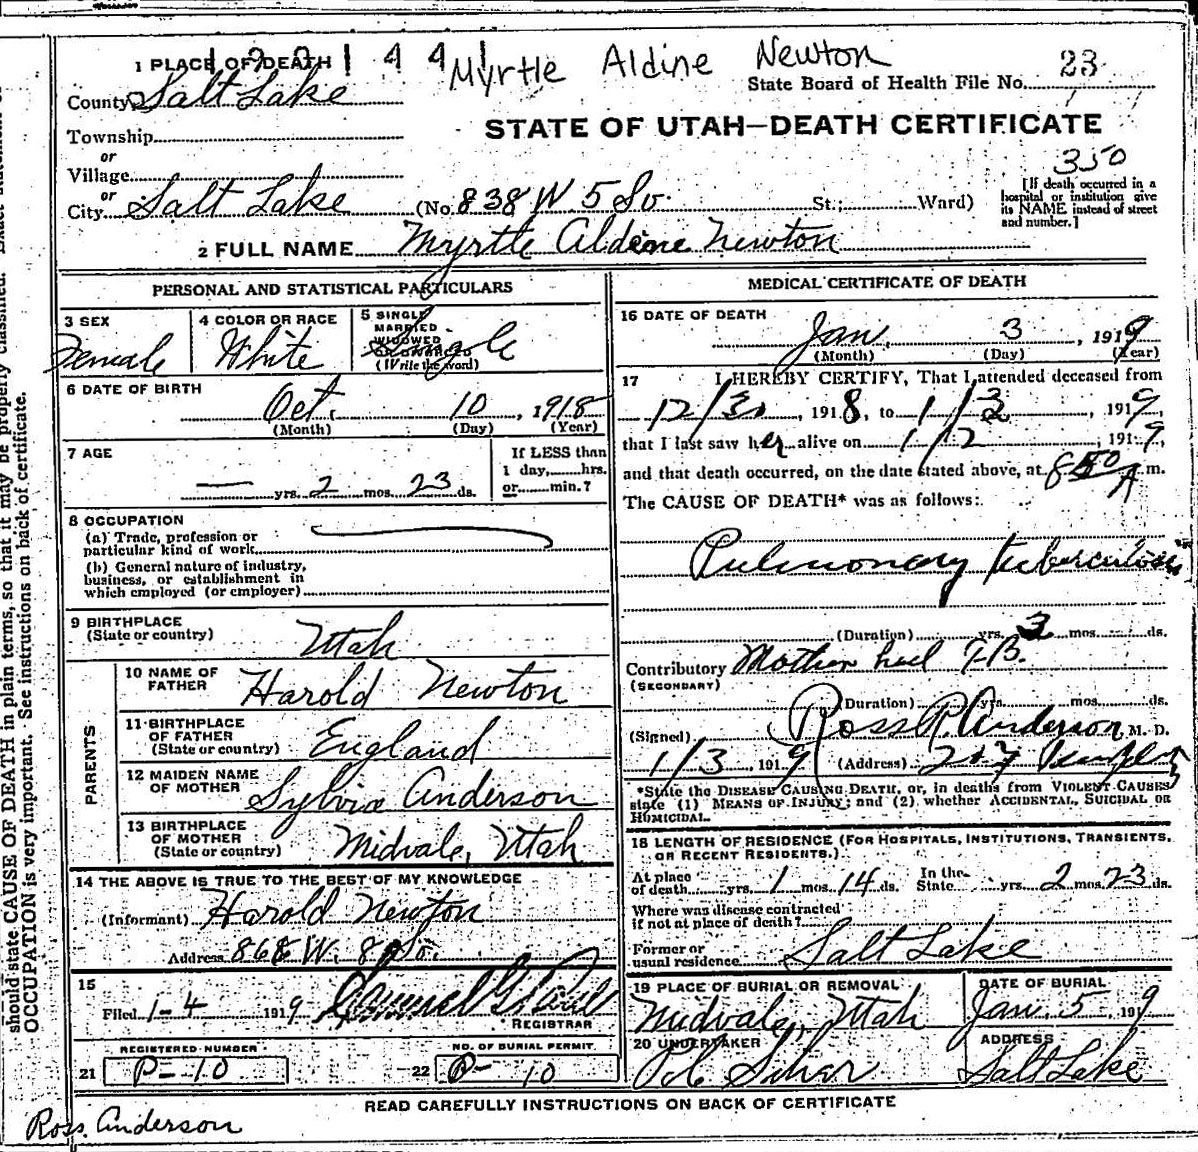 Myrtle Aldine Newton
1 PLACE OF DEATH
State Board of Health File No. 23
County Salt Lake
STATE OF UTAH—DEATH CERTIFICATE
Township
or
Village
350
or
City Salt Lake (No. 838 W 5 So. St.; Ward)
[If death occurred in a
hospital or institution give
its NAME instead of street
and number.]
2 FULL NAME Myrtle Aldene Newton
PERSONAL AND STATISTICAL PARTICULARS
3 SEX
Female
4 COLOR OR RACE
White
5 SINGLE
MARRIED
WIDOWED
OR DIVORCED
(Write the word)
Single
6 DATE OF BIRTH
Oct. 10, 1918
(Month) (Day) (Year)
7 AGE
— yrs. 2 mos. 23 ds.
If LESS than
1 day, hrs.
or min.?
8 OCCUPATION
(a) Trade, profession or
particular kind of work
(b) General nature of industry,
business, or establishment in
which employed (or employer)
9 BIRTHPLACE
(State or country)
Utah
PARENTS
10 NAME OF
FATHER
Harold Newton
11 BIRTHPLACE
OF FATHER
(State or country)
England
12 MAIDEN NAME
OF MOTHER
Sylvia Anderson
13 BIRTHPLACE
OF MOTHER
(State or country)
Midvale, Utah
14 THE ABOVE IS TRUE TO THE BEST OF MY KNOWLEDGE
(Informant) Harold Newton
Address 868 W. 8 So.
15
Filed 1-4 1919
REGISTRAR
REGISTERED NUMBER
21 P-10
NO. OF BURIAL PERMIT
22 P-10
MEDICAL CERTIFICATE OF DEATH
16 DATE OF DEATH
Jan. 3, 1919
(Month) (Day) (Year)
17 I HEREBY CERTIFY, That I attended deceased from
12/30, 1918, to 1/3, 1919,
that I last saw her alive on 1/2, 1919,
and that death occurred, on the date stated above, at 850 A m.
The CAUSE OF DEATH* was as follows:
Pulmonary tuberculosis
(Duration) yrs. 3 mos. ds.
Contributory Mother had T.B.
(SECONDARY)
(Duration) yrs. mos. ds.
(Signed) Ross R. Anderson M. D.
1/3, 1919 (Address) 207
*State the DISEASE CAUSING DEATH, or, in deaths from VIOLENT CAUSES
state (1) MEANS OF INJURY; and (2) whether ACCIDENTAL, SUICIDAL OR
HOMICIDAL.
18 LENGTH OF RESIDENCE (FOR HOSPITALS, INSTITUTIONS, TRANSIENTS,
OR RECENT RESIDENTS.)
At place
of death yrs. 1 mos. 14 ds.
In the
State yrs. 2 mos. 23 ds.
Where was disease contracted
if not at place of death?
Former or
usual residence Salt Lake
19 PLACE OF BURIAL OR REMOVAL
Midvale, Utah
DATE OF BURIAL
Jan. 5, 1919
20 UNDERTAKER
ADDRESS
Salt Lake
READ CAREFULLY INSTRUCTIONS ON BACK OF CERTIFICATE
Ross Anderson
should state CAUSE OF DEATH in plain terms, so that it may be properly classified.
OCCUPATION is very important. See instructions on back of certificate.